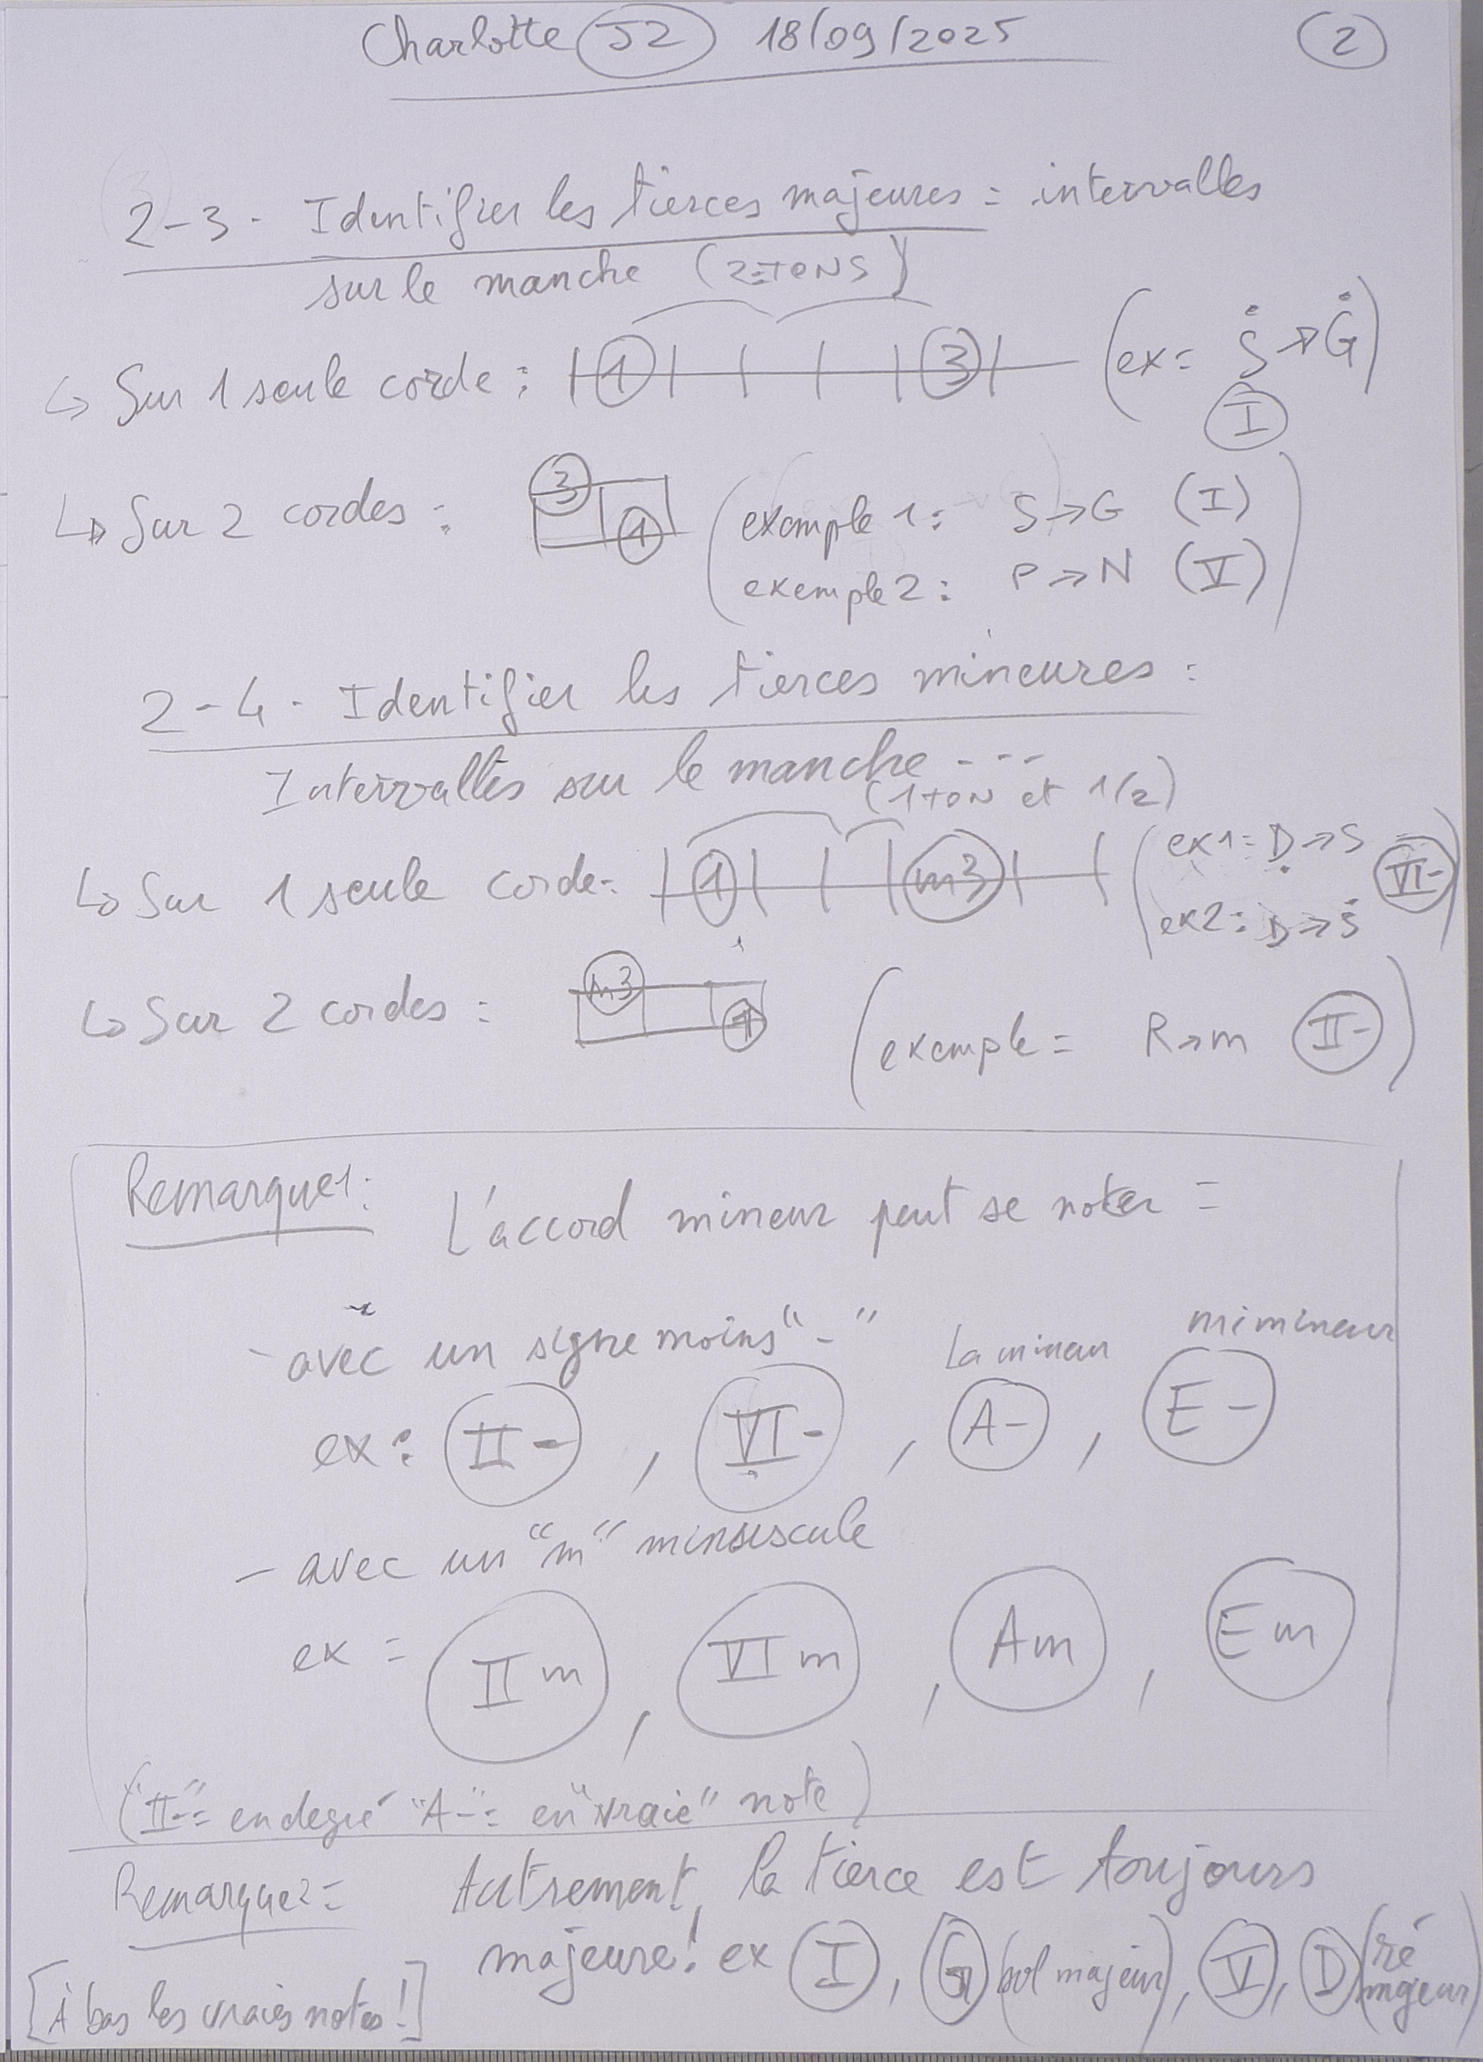 Charlotte J2 18/09/2025 2
2-3. Identifier les tierces majeures = intervalles
sur le manche (2 TONS)
↳ Sur 1 seule corde : 1 3 (ex = Ṡ → Ġ)
I
↳ Sur 2 cordes : 3 1 (example 1 : S → G (I)
exemple 2 : P → N (V))
2-4. Identifier les tierces mineures :
Intervalles sur le manche ---
(1 TON et 1/2)
↳ Sur 1 seule corde : 1 m3 (ex1 = Ḍ → S VI-
ex2 : D → Ṡ)
↳ Sur 2 cordes : m3 1 (exemple = R → m II-)
Remarque 1 : L'accord mineur peut se noter =
- avec un signe moins "-" La mineur mi mineur
ex : II- , VI- , A- , E-
- avec un "m" minuscule
ex = IIm , VIm , Am , Em
("II-" = en degré "A-" = en "vraie" note)
Remarque 2 = Autrement, la tierce est toujours
majeure ! ex I , G (sol majeur), V , D (ré majeur)
[À bas les vraies notes !]